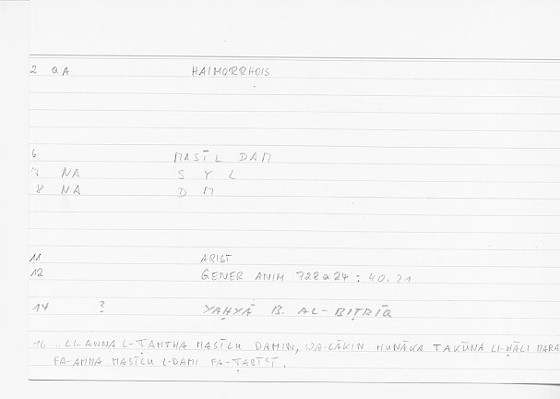 2 QA HAIMORRHOIS
6 MASĪL DAM
7 NA S Y L
8 NA D M
11 ARIST
12 GENER ANIM 728a24 : 40.21
14 ? YAḤYĀ B. AL-BIṬRĪQ
16 ... LI-ANNA L-ṬAMTHA MASĪLU DAMIN, WA-LĀKIN HUNĀKA TAKŪNU LI-ḤĀLI MARA
FA-AMMA MASĪLU L-DAMI FA-ṬABĪʿĪ.